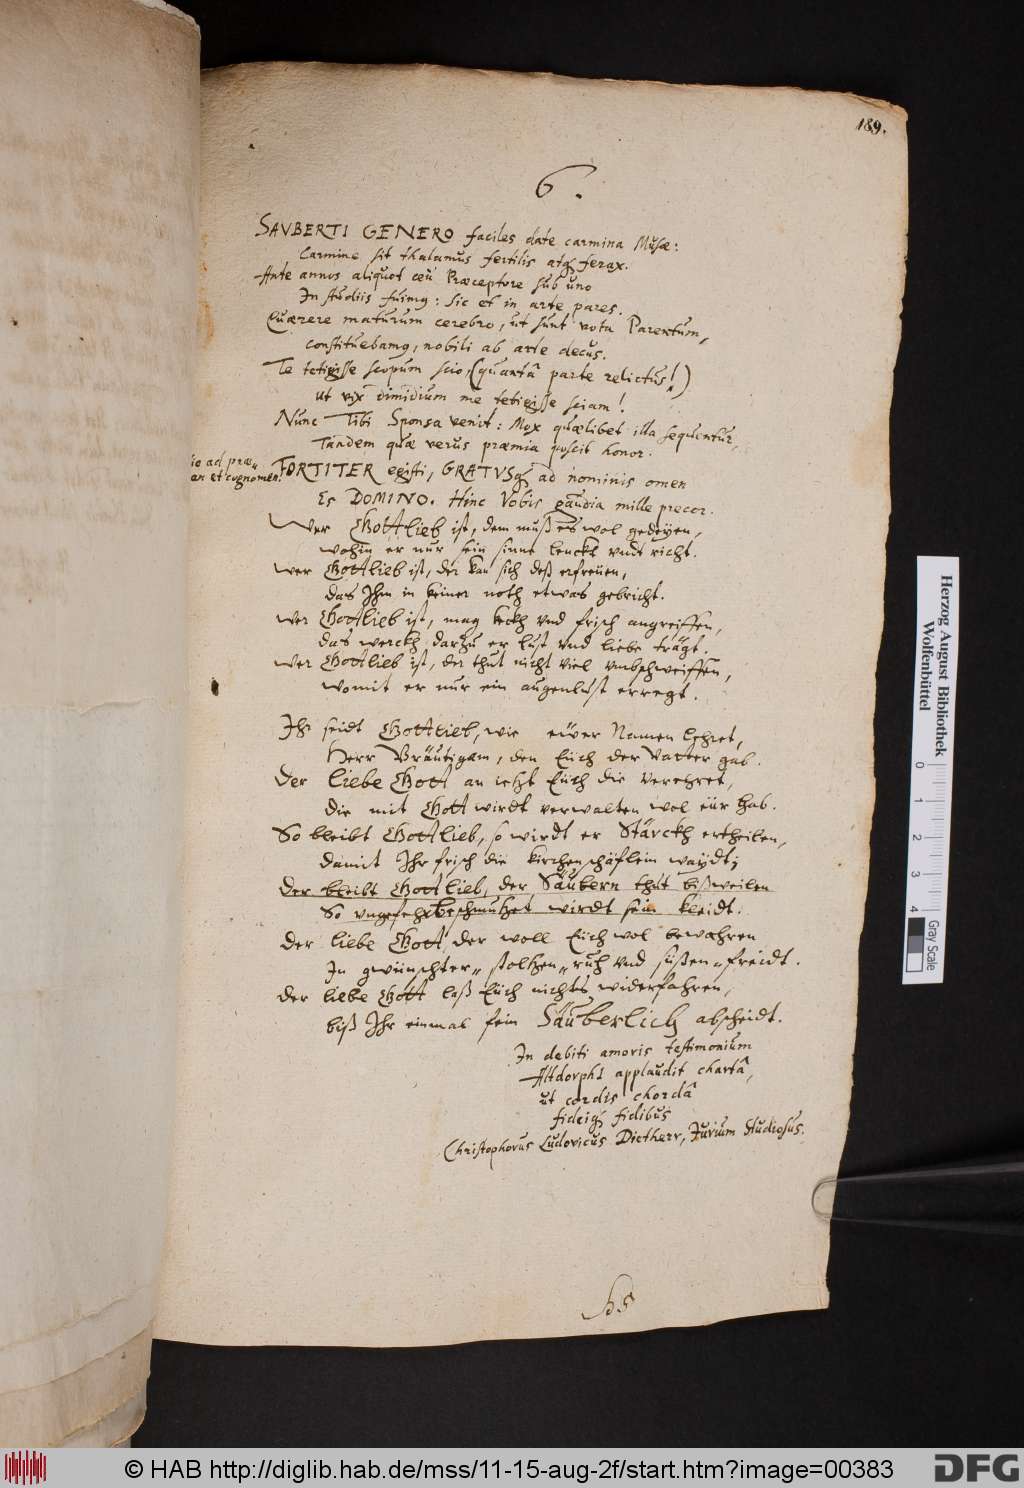 189.
6.
SAVBERTI GENERO faciles date carmina Musæ:
Carmine sit thalamus fertilis atq; ferax.
Ante annos aliquot ceu Præceptore sub uno
In studiis fuimq: sic et in arte pares.
Quærere maturum cerebro, ut sunt vota Parentum,
constituebamq, nobili ab arte decus.
Te tetigisse scopum scio, (quartâ parte relictus!)
ut vix dimidium me tetigisse sciam!
Nunc Tibi Sponsa venit: Mox quælibet illa sequentur,
Tandem quæ verus præmia poscit honor.
io ad præ„
an et cognomen.
FORTITER egisti, GRATVSq; ad nominis omen
Es DOMINO. Hinc Vobis gaudia mille precor.
Wer Gottlieb ist, dem muß es wol gedeÿen,
wohin er nur sein sinne lenckt vndt richt.
wer Gottlieb ist, der kan sich deß erfreüen,
das Ihm in keiner noth etwas gebricht.
wer Gottlieb ist, mag keckh vnd frisch angreiffen,
das werckh darzu er lust vnd liebe trägt.
wer Gottlieb ist, der thut nicht viel vmbschweiffen,
womit er nur ein augenlust erregt.
Ihr seidt Gottlieb, wie eüer Namen Lehret,
Herr Bräutigam, den Euch der Vatter gab.
Der liebe Gott an ietzt Euch die verehret,
die mit Gott wirdt verwalten wol eür hab.
So bleibt Gottlieb, so wirdt er Stärckh ertheilen,
damit Ihr frisch die kirchenschäflein waÿdt;
Der bleibt Gottlieb, der Säubern thut bißweilen
So vngefehr beschmutzet wirdt sein kleidt.
Der liebe Gott, der woll Euch wol bewahren
In gwünschter„ stoltzen„ ruh vnd süßen„ freidt.
Der liebe Gott laß Euch nichts widerfahren,
biß Ihr einmal fein Säuberlich abscheidt.
In debiti amoris testimonium
Altdorphi applaudit chartâ,
ut cordis chordâ
fideiq; fidibus
Christophorus Ludovicus Dietherr, Jurium Studiosus.
Herzog August Bibliothek
Wolfenbüttel
0 1 2 3 4
Gray Scale
© HAB http://diglib.hab.de/mss/11-15-aug-2f/start.htm?image=00383
DFG